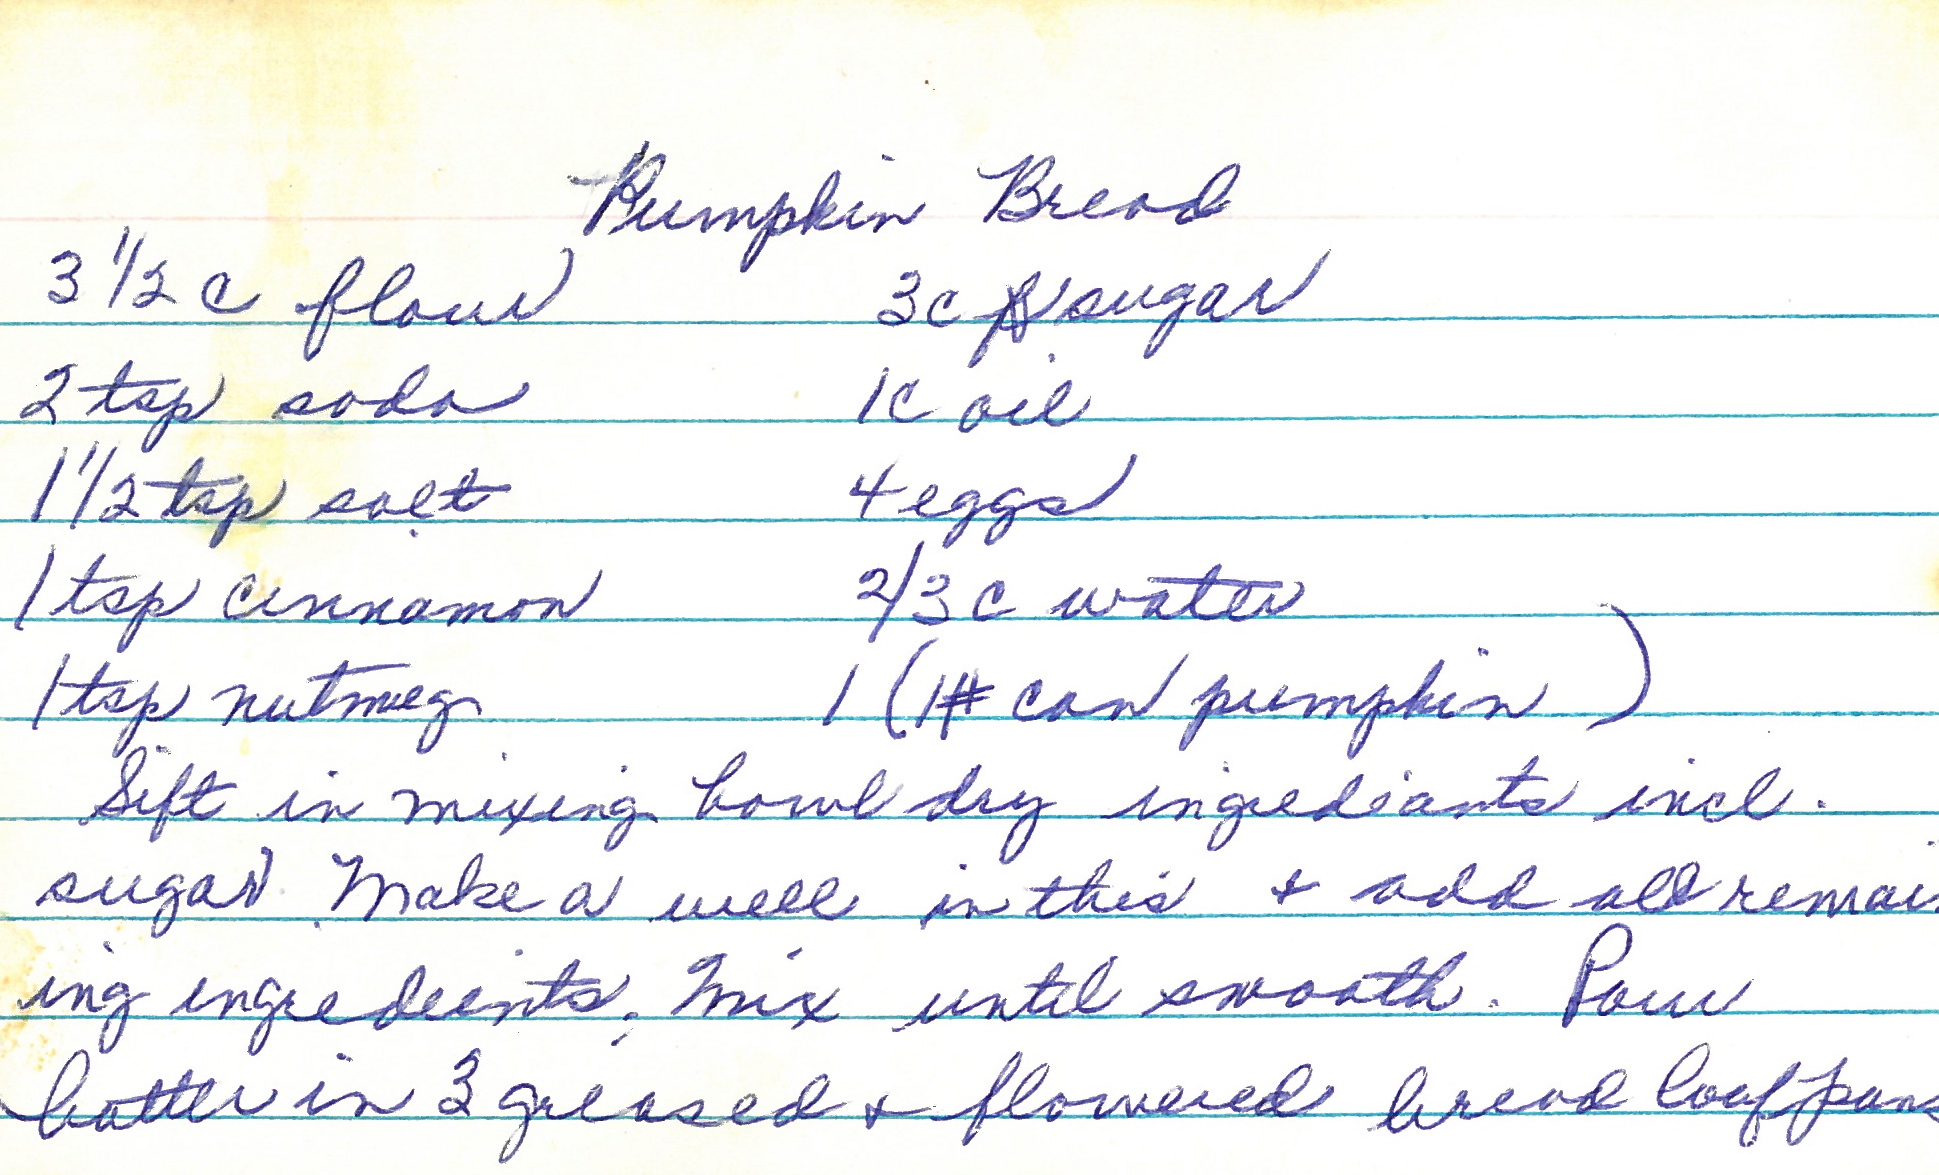 Pumpkin Bread
3 1/2 c flour 3c sugar
2 tsp soda 1c oil
1 1/2 tsp salt 4 eggs
1 tsp cinnamon 2/3 c water
1 tsp nutmeg 1 (1# can pumpkin)
Sift in mixing bowl dry ingrediants incl.
sugar. Make a well in this & add all remain
ing ingredeints. Mix until smooth. Pour
batter in 3 greased & flowered bread loaf pans